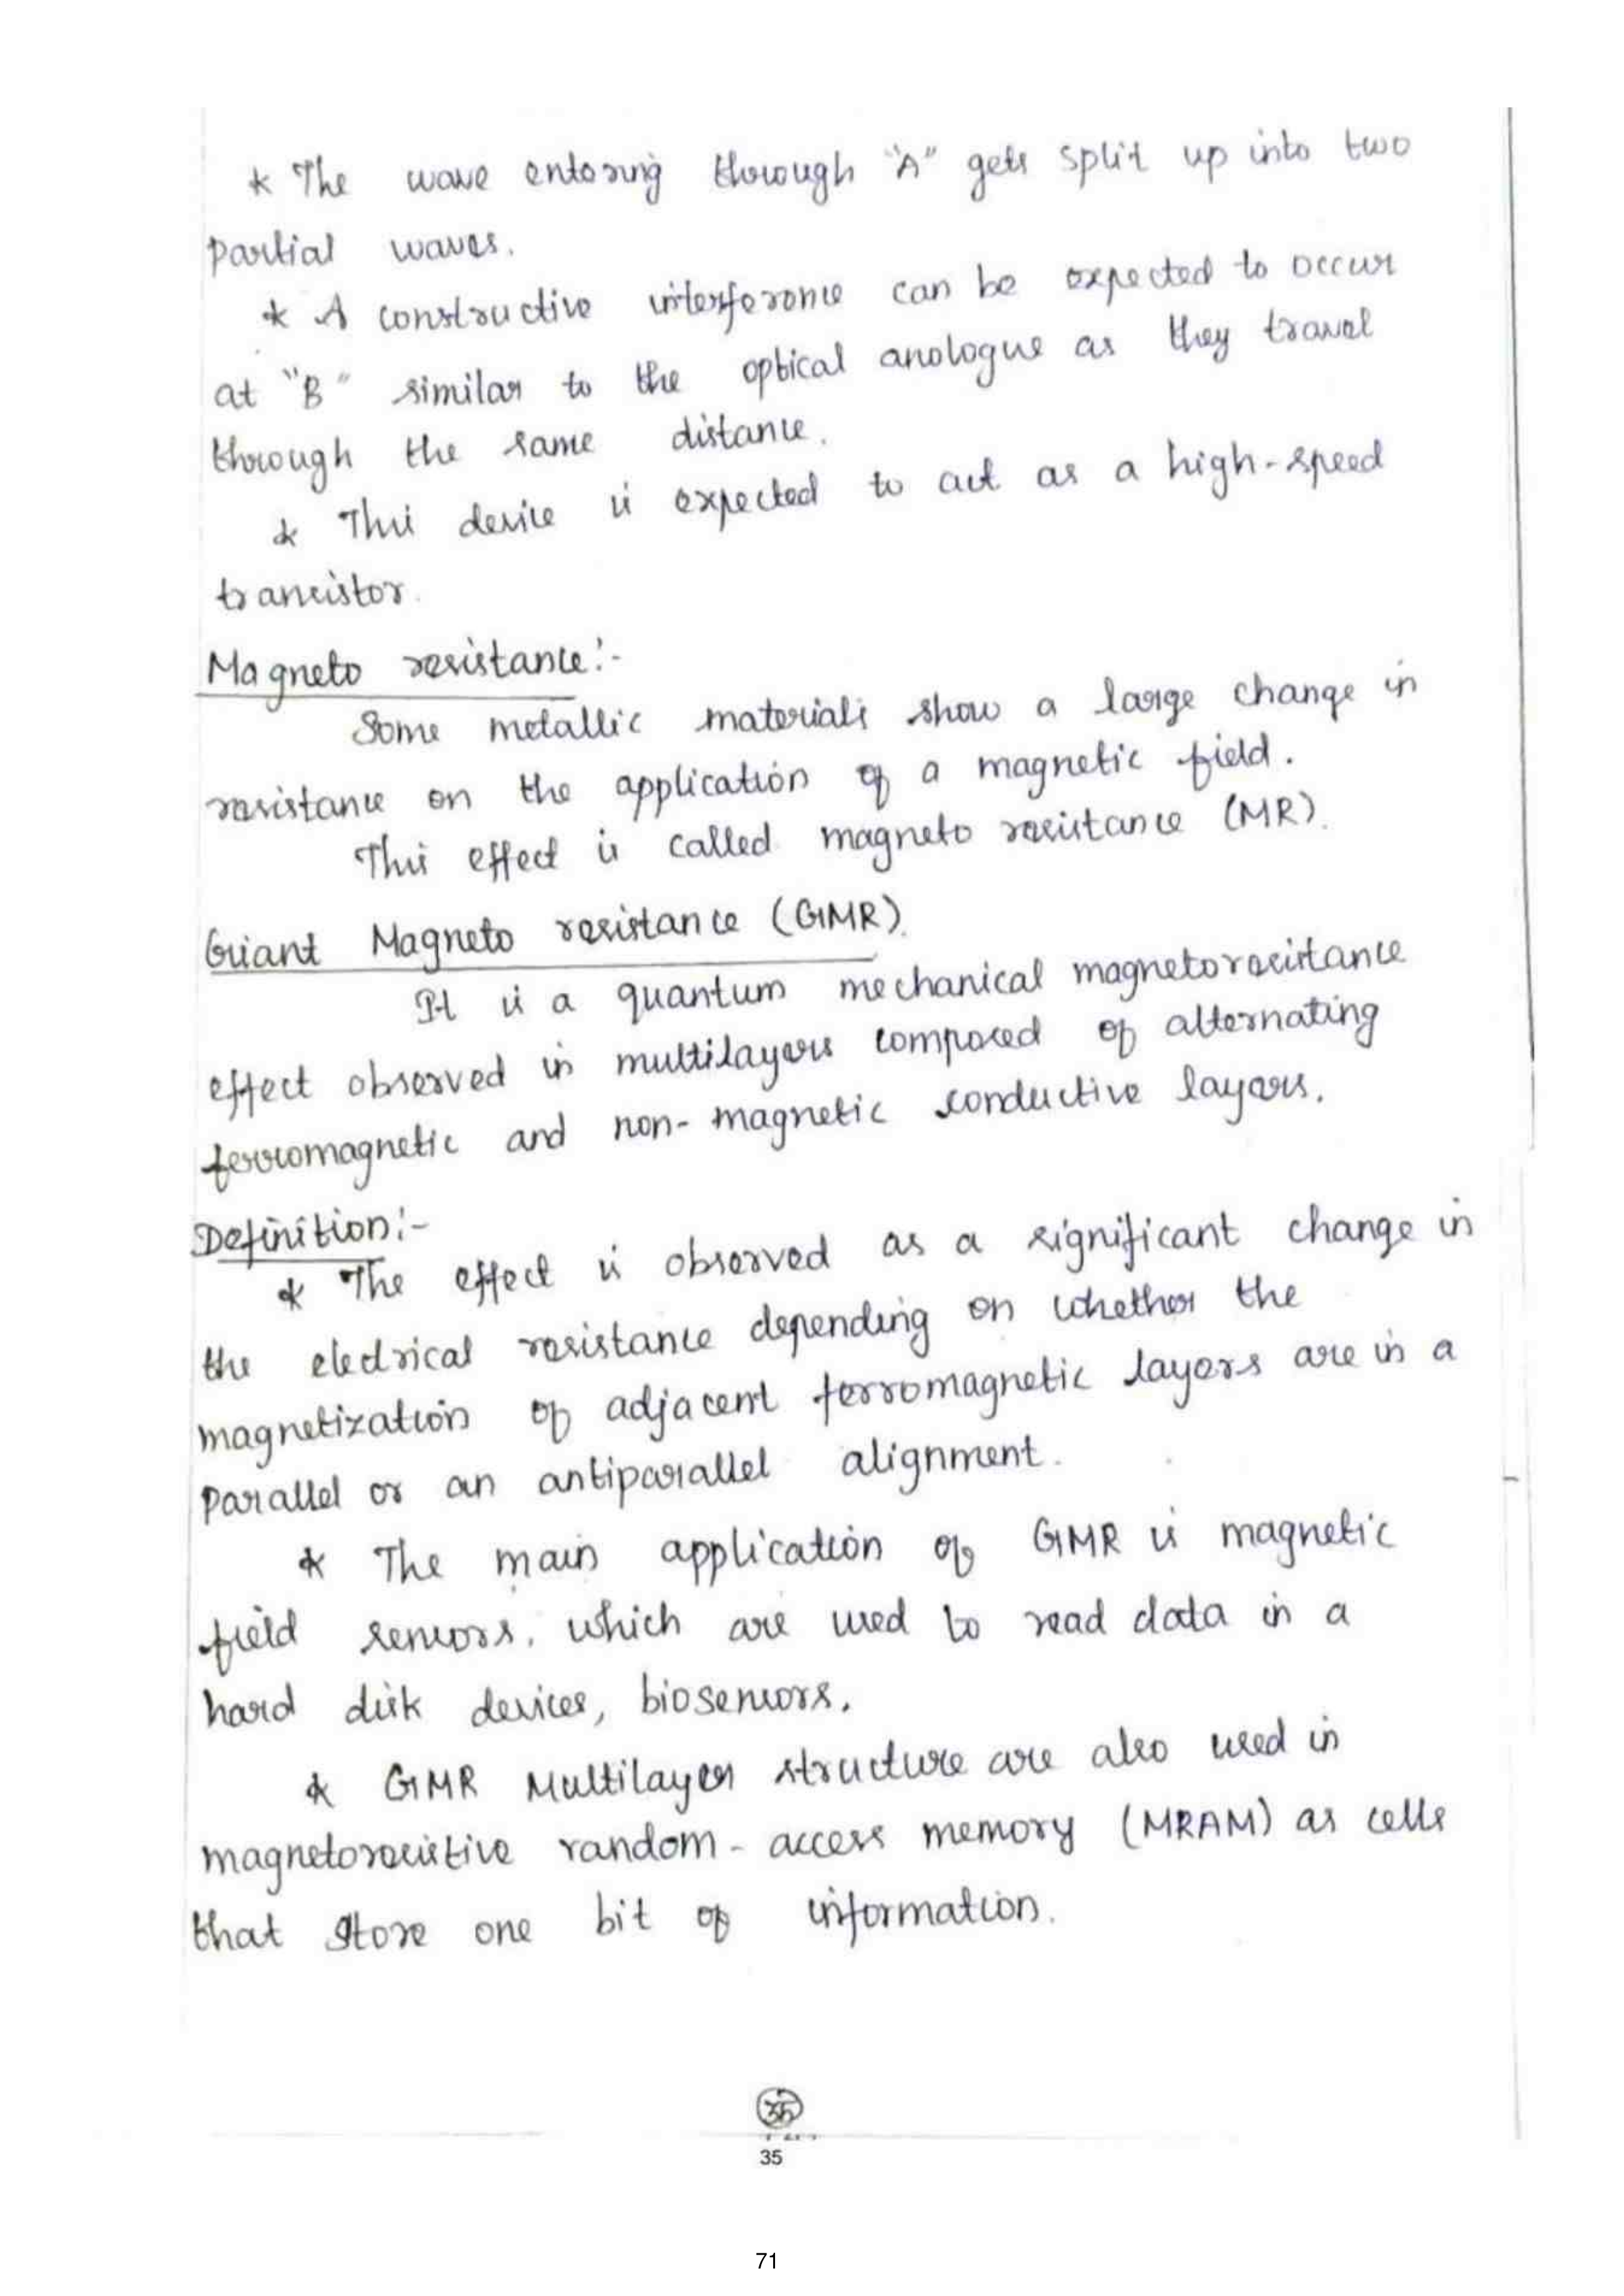 * The wave entering through "A" gets split up into two
partial waves.
* A constructive interference can be expected to occur
at "B" similar to the optical anologue as they travel
through the same distance.
* This device is expected to act as a high-speed
transistor.
Magneto resistance:-
Some metallic materials show a large change in
resistance on the application of a magnetic field.
This effect is called magneto resistance (MR).
Giant Magneto resistance (GMR).
It is a quantum mechanical magnetoresistance
effect observed in multilayers composed of alternating
ferromagnetic and non-magnetic conductive layers.
Definition:-
* The effect is observed as a significant change in
the electrical resistance depending on whether the
magnetization of adjacent ferromagnetic layers are in a
parallel or an antiparallel alignment.
* The main application of GMR is magnetic
field sensors, which are used to read data in a
hard disk devices, biosensors.
* GMR Multilayer structure are also used in
magnetoresistive random-access memory (MRAM) as cells
that store one bit of information.
35
35
71